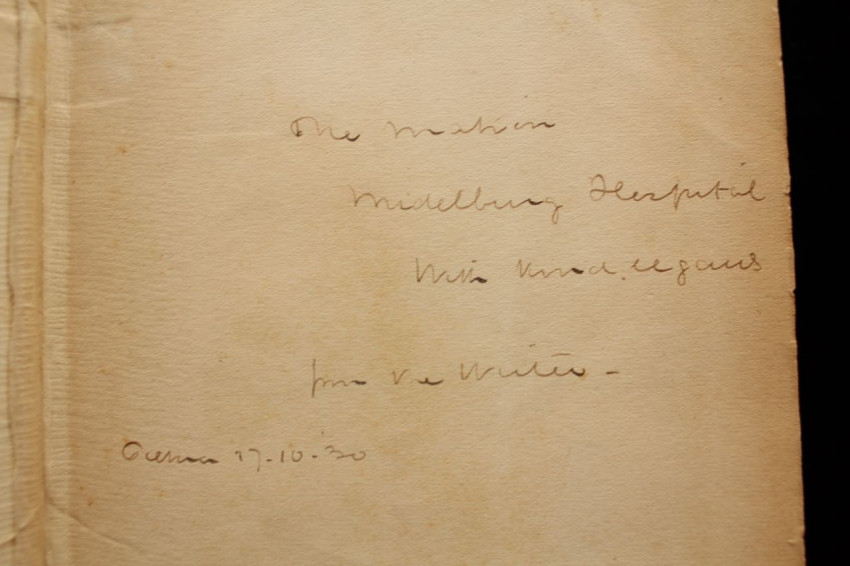 The Matron
Middelburg Hospital
With kind regards
from the Writer -
17-10-30